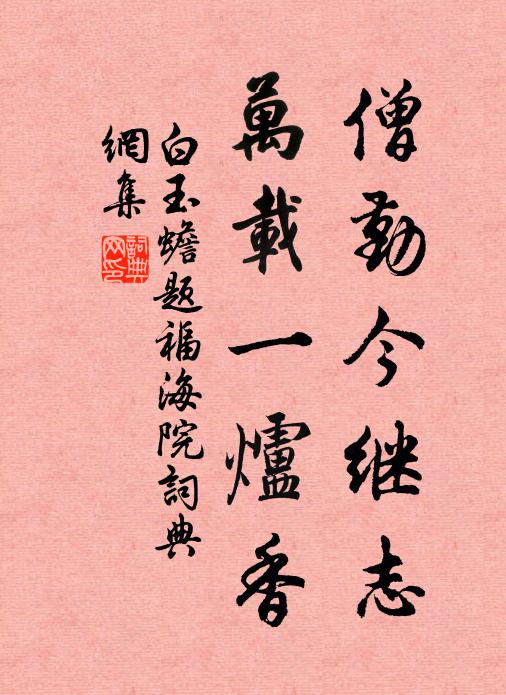 僧勤今继志
萬載一爐香
白玉蟾題福海院詞典
網集
詞典网印